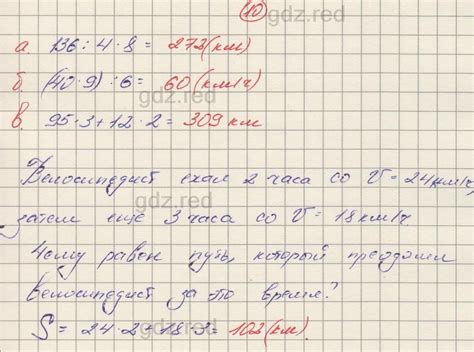 10
gdz.red
а. 136 : 4 · 8 = 272 (км)
б. (40 · 9) : 6 = 60 (км/ч)
gdz.red
в. 95 · 3 + 12 · 2 = 309 км
gdz.red
Велосипедист ехал 2 часа со V = 24 км/ч,
затем ещё 3 часа со V = 18 км/ч.
Чему равен путь, который преодолел
велосипедист за это время?
S = 24 · 2 + 18 · 3 = 102 (км).
gdz.red